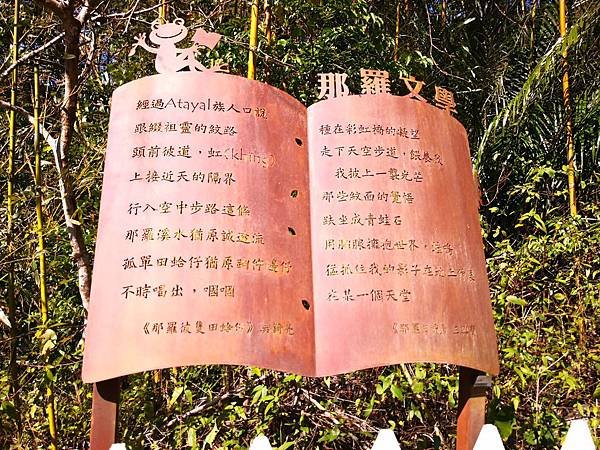 那羅文學
經過Atayal族人口說
跟綴祖靈的紋路
頭前彼道，虹(khing)
上接近天的隔界
行入空中步路這條
那羅溪水猶原誠逝流
孤單田蛤仔猶原踮佇邊仔
不時唱出，嘓嘓
《那羅彼隻田蛤仔》
種在彩虹橋的凝望
走下天空步道，
我披上一襲光芒
那些紋面的覺悟
趺坐成青蛙石
用胸腹擁抱世界，
猛抓住我的影子在池上
在某一個天堂
《那羅